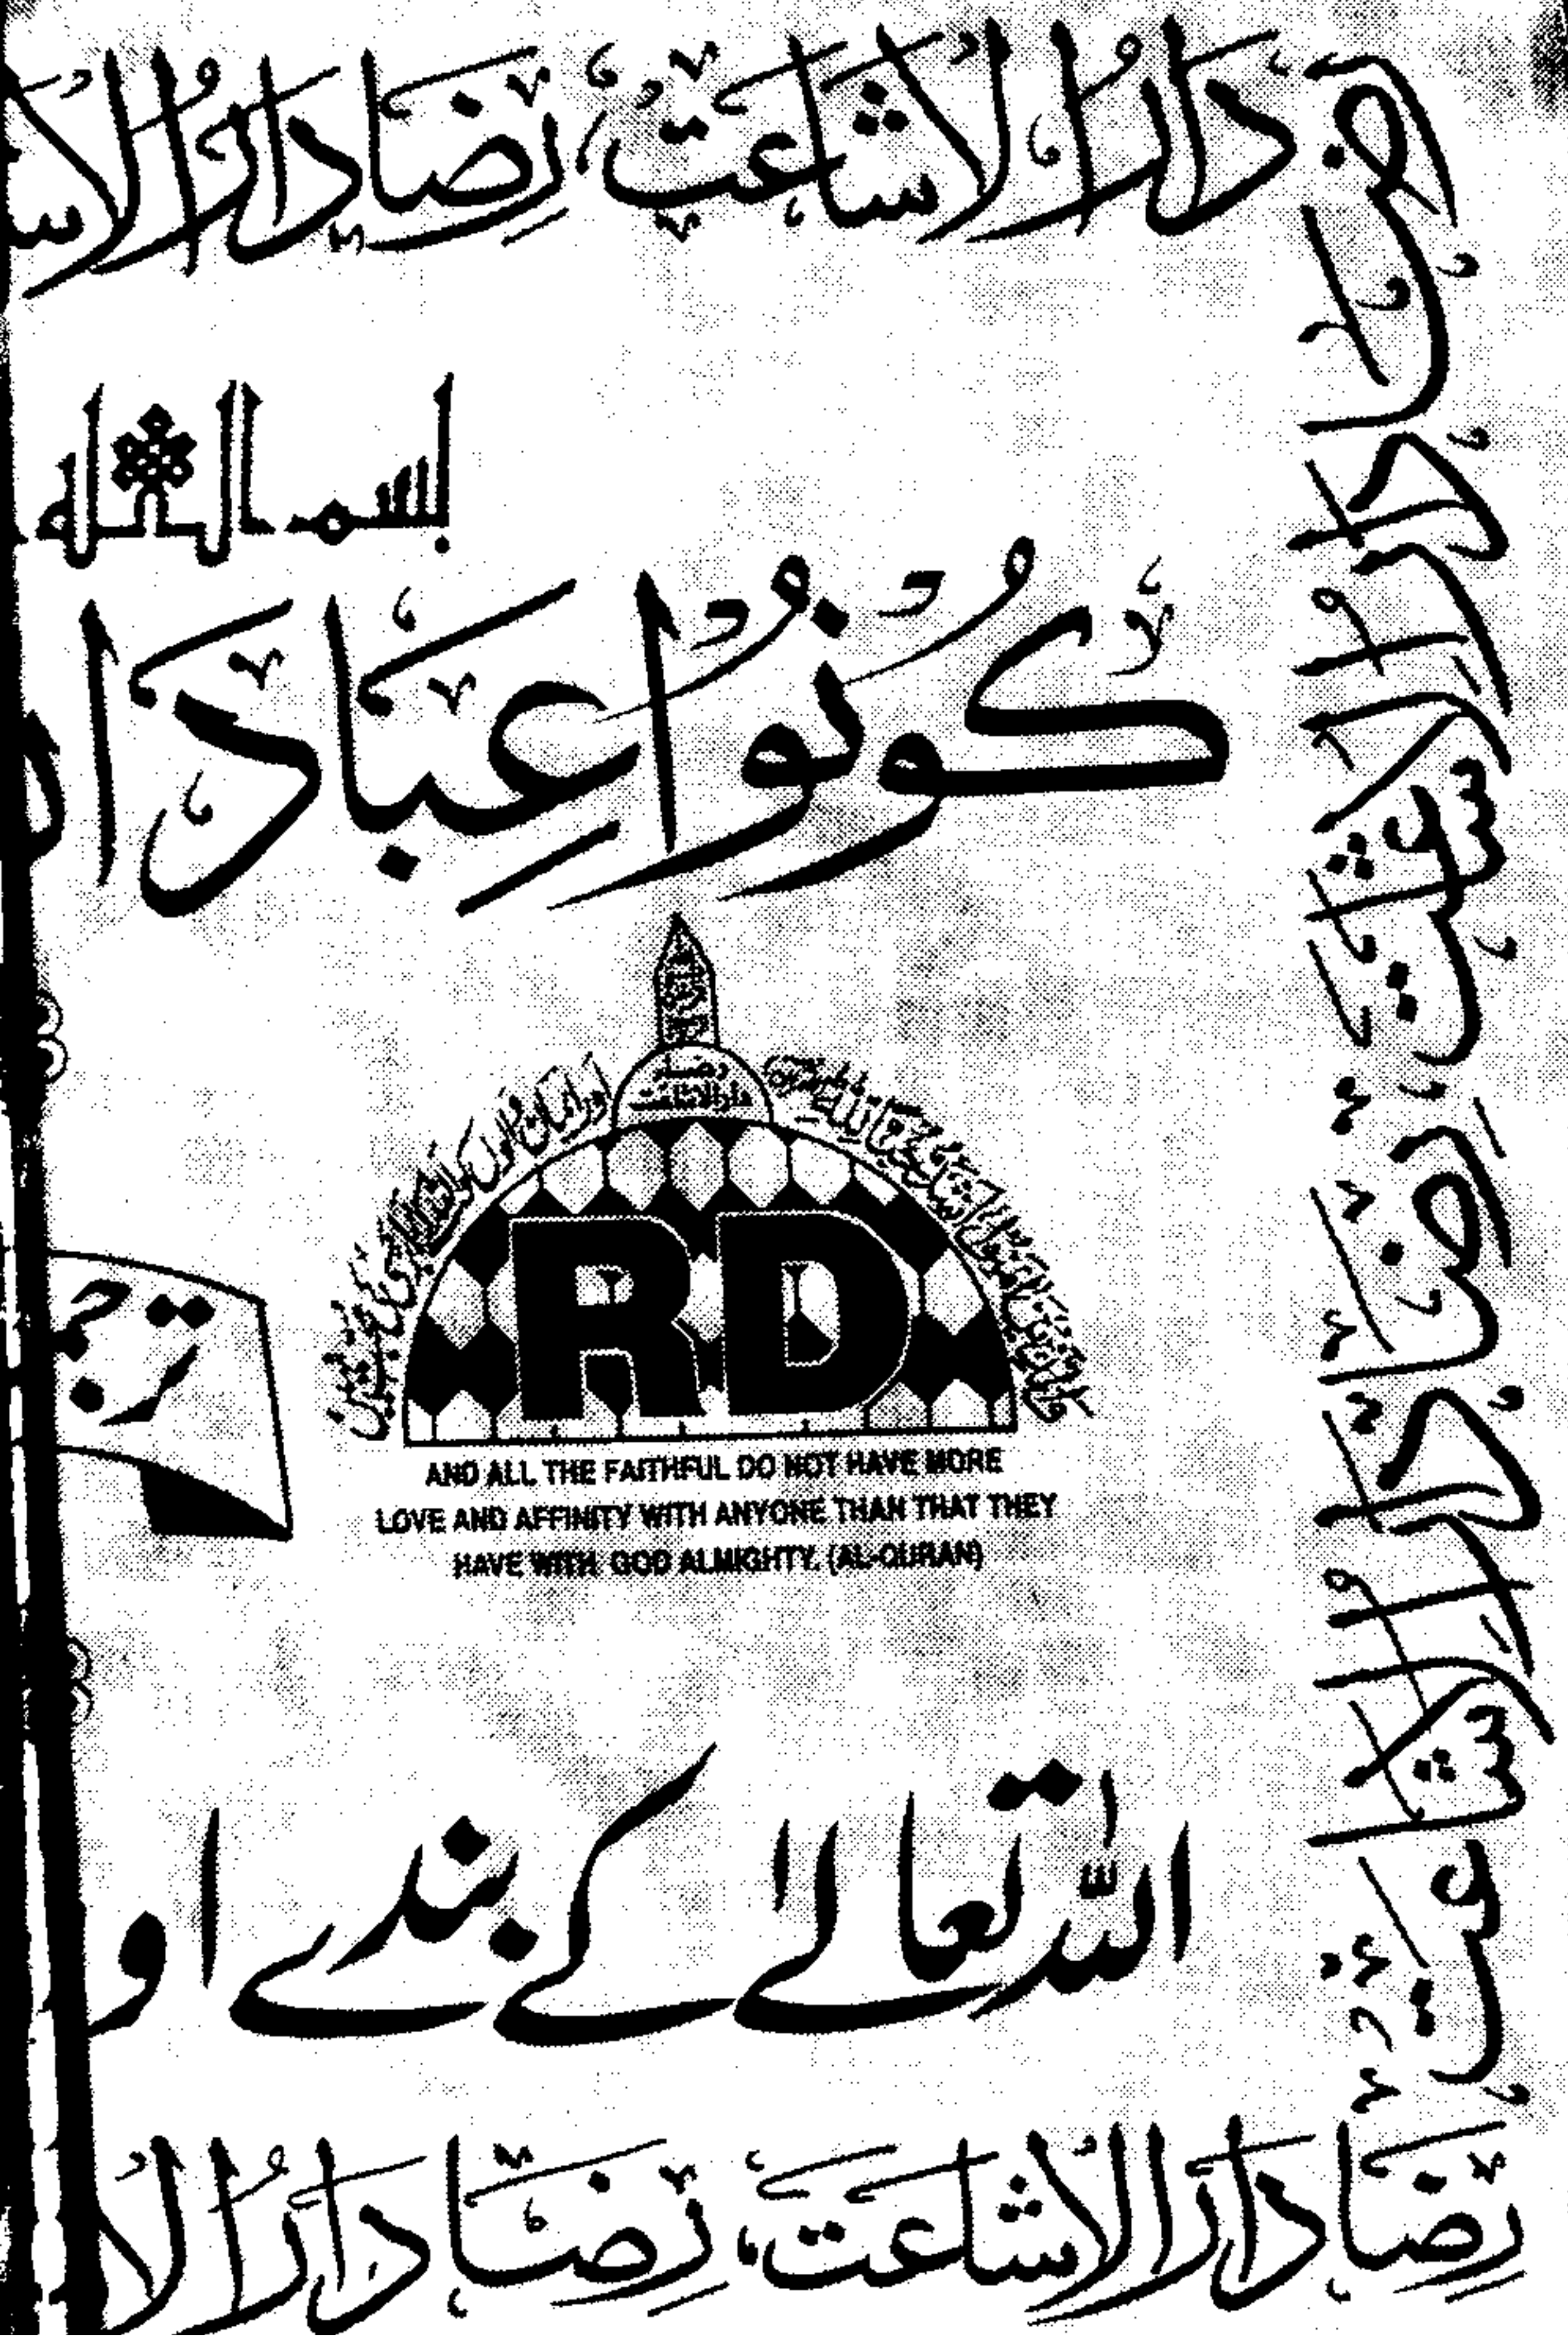 دَارُالْاِشَاعَتْ، رِضَا دَارُالْاِشَا
رِضَا دَارُالْاِشَاعَتْ رِضَا دَارُالْاِشَاعَتْ
بسم الله
كُوْنُوْا عِبَادَ ا
رضا
دارالاشاعت
RD
ترجمہ
AND ALL THE FAITHFUL DO NOT HAVE MORE
LOVE AND AFFINITY WITH ANYONE THAN THAT THEY
HAVE WITH GOD ALMIGHTY. (AL-QURAN)
اللہ تعالےٰ کے بندے او
رِضَا دَارُالْاِشَاعَتْ، رِضَا دَارُ الْا